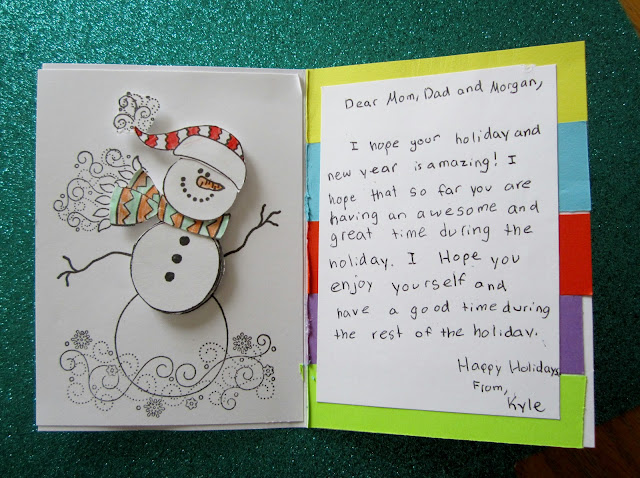 Dear Mom, Dad and Morgan,
I hope your holiday and
new year is amazing! I
hope that so far you are
having an awesome and
great time during the
holiday. I Hope you
enjoy yourself and
have a good time during
the rest of the holiday.
Happy Holidays
From,
Kyle